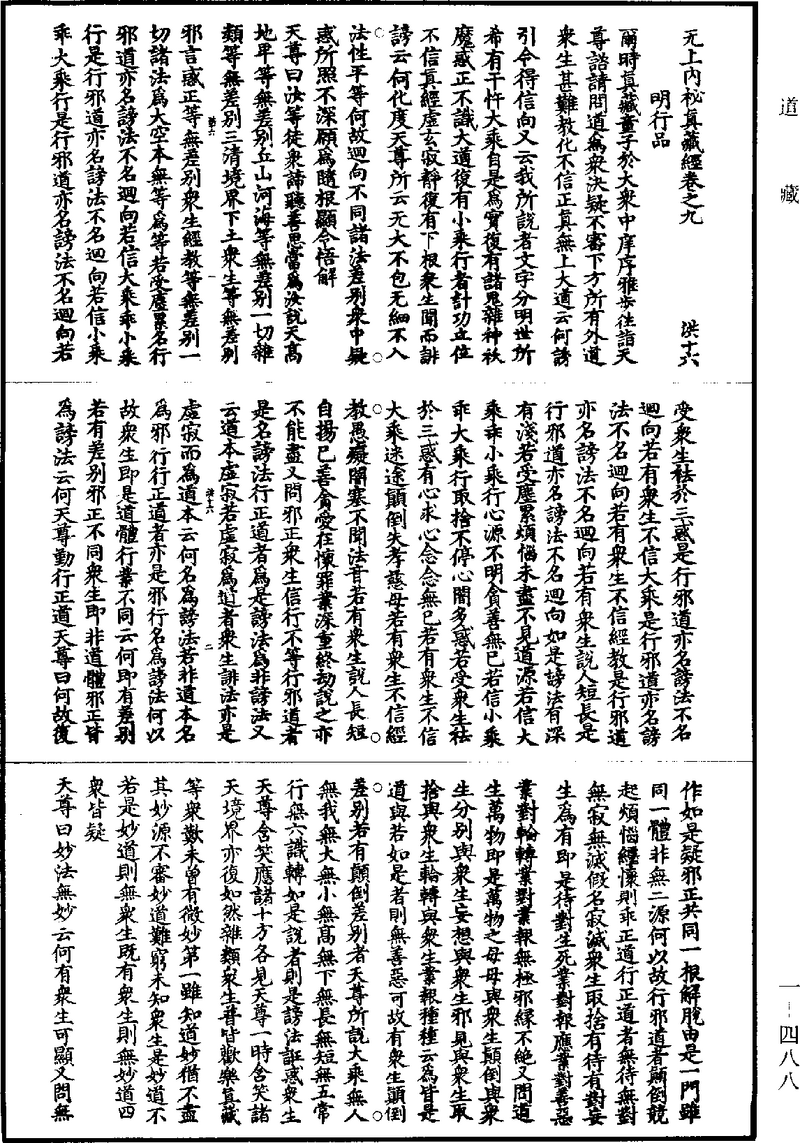 道藏
一－四八八
无上內祕真藏經卷之九　洪十六
明行品
爾時真藏童子於大衆中庠序雅步往詣天
尊諮請問道為衆決疑不審下方所有外道
衆生甚難教化不信正真無上大道云何謗
引令得信向又云我所說者文字分明世所
希有干忤大乘自是為實復有諸鬼雜神祅
魔惑正不識大道復有小乘行者計功立位
不信真經虛玄寂靜復有下根衆生聞而誹
謗云何化度天尊所云无大不包无細不入
法性平等何故迴向不同諸法差別衆中疑
惑所照不深願為隨根顯令悟解
天尊曰汝等徒衆諦聽善思當為汝說天高
地平等無差別丘山河海等無差別一切雜
類等無差別三清境界下土衆生等無差別
邪言惑正等無差別衆生經教等無差別一
切諸法為大空本無等為等若受塵累名行
邪道亦名謗法不名迴向若信大乘乖小乘
行是行邪道亦名謗法不名迴向若信小乘
乖大乘行是行邪道亦名謗法不名迴向若
受衆生祛於三惑是行邪道亦名謗法不名
迴向若有衆生不信大乘是行邪道亦名謗
法不名迴向若有衆生不信經教是行邪道
亦名謗法不名迴向若有衆生說人短長是
行邪道亦名謗法不名迴向如是謗法有深
有淺若受塵累煩惱未盡不見道源若信大
乘乖小乘行心源不明貪善無已若信小乘
乖大乘行取捨不停心闇多惑若受衆生祛
於三惑有心求心念念無已若有衆生不信
大乘迷途顛倒失孝慈母若有衆生不信經
教愚癡闇塞不聞法音若有衆生說人長短
自揚已善貪愛在懷罪業深重終劫說之亦
不能盡又問邪正衆生信行不等行邪道者
是名謗法行正道者為是謗法為非謗法又
云道本虛寂若虛寂為道者衆生誹法亦是
虛寂而為道本云何名為謗法若非道本名
為邪行行正道者亦是邪行名為謗法何以
故衆生即是道體行業不同云何即有差別
若有差別邪正不同衆生即非道體邪正皆
為謗法云何天尊勤行正道天尊曰何故復
作如是疑邪正共同一根解脫由是一門雖
同一體非無二源何以故行邪道者顛倒競
起煩惱纏懷則乖正道行正道者無待無對
無寂無滅假名寂滅衆生取捨有待有對妄
生為有即是待對生死業對報應業對善惡
業對輪轉業對業報無極邪緣不絕又問道
生萬物即是萬物之母母與衆生顛倒與衆
生分別與衆生妄想與衆生邪見與衆生取
捨與衆生輪轉與衆生業報種種云為皆是
道與若如是者則無善惡可故有衆生顛倒
差別若有顛倒差別者天尊所說大乘無人
無我無大無小無高無下無長無短無五常
行無六識轉如是說者則是謗法誑惑衆生
天尊含笑應諸十方各見天尊一時含笑諸
天境界亦復如然雜類衆生普皆歡樂真藏
等衆歎未曾有微妙第一雖知道妙猶不盡
其妙源不審妙道難窮未知衆生是妙道不
若是妙道則無衆生既有衆生則無妙道四
衆皆疑
天尊曰妙法無妙云何有衆生可顯又問無